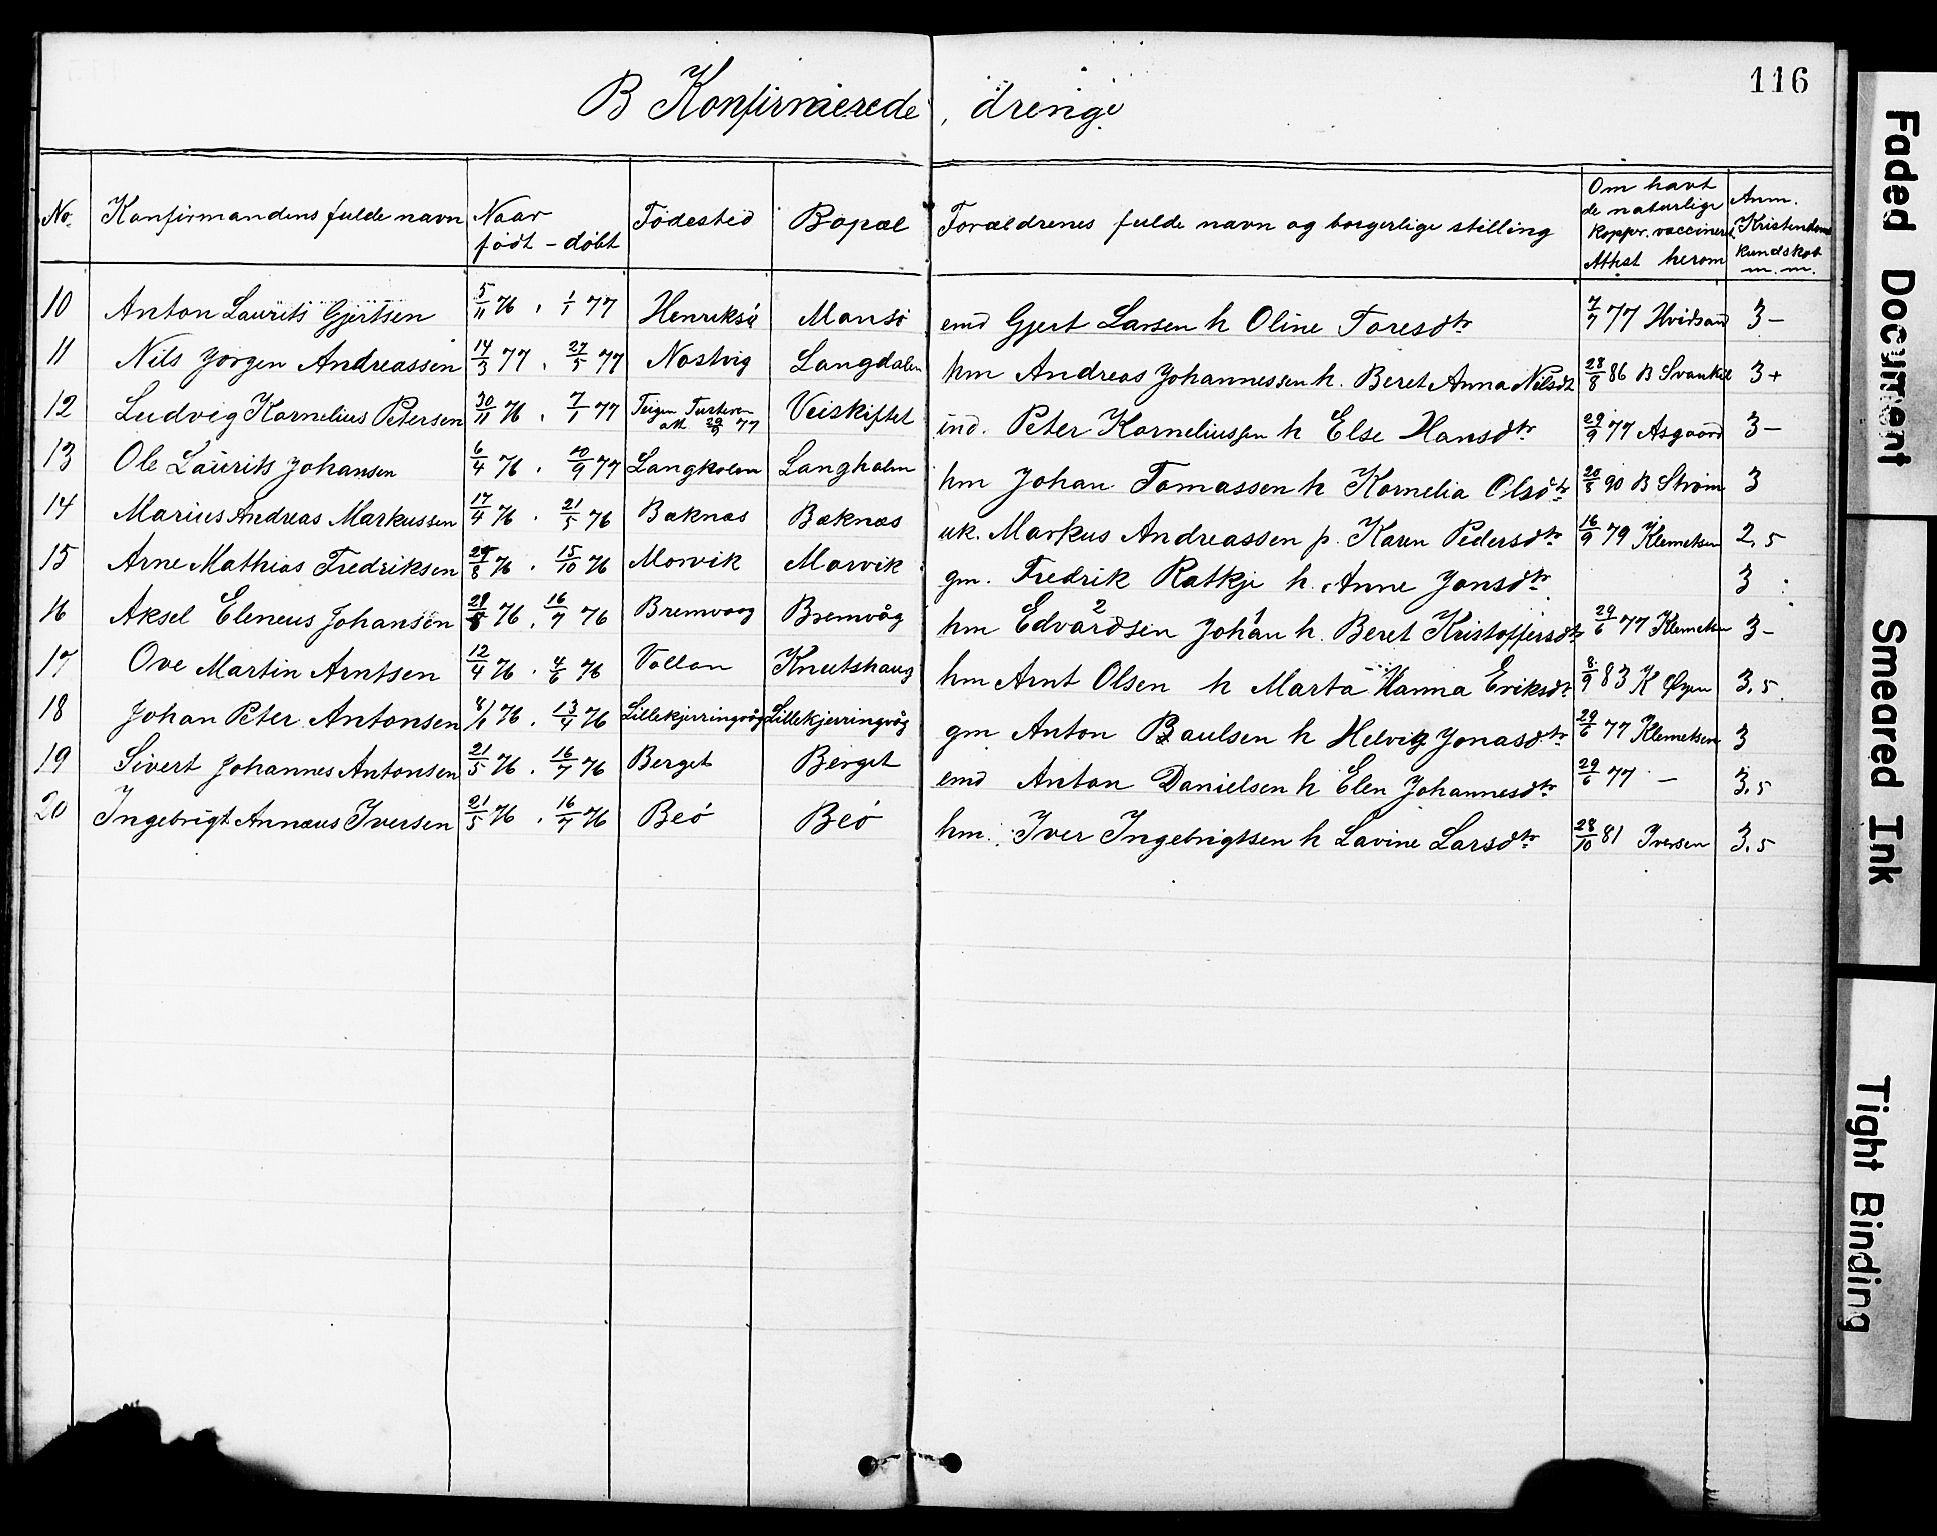 116
B Konfirmerede drenge
No. Konfirmandens fulde navn Naar født - døbt Fødested Bopæl Forældrenes fulde navn og borgerlige stilling Om havt de naturlige kopper. vaccineret Attest herom Anm. Kristendoms kundskab m. m.
10 Anton Laurits Gjertsen 5/11 76 . 1/1 77 Henriksø Mansø emd Gjert Larsen h Oline Toresdtr 7/7 77 Hvidsand 3-
11 Nils Jørgen Andreassen 14/3 77 . 27/5 77 Nostvig Langdalen hm Andreas Johannessen h. Beret Anna Nilsdt 28/8 86 B Svankil 3+
12 Ludvig Kornelius Petersen 30/11 76 . 7/1 77 Teigen Tusteren att 29/9 77 Veiskiftet ind. Peter Korneliussen h Else Hansdtr 29/9 77 Asgaard 3-
13 Ole Laurits Johansen 6/4 76 . 10/9 77 Langholm Langholm hm Johan Tomassen h Kornelia Olsdtr 20/8 90 B Strøm 3
14 Marius Andreas Markussen 17/4 76 . 21/5 76 Bæknes Bæknæs uk. Markus Andreassen p. Karen Pedersdtr 16/9 79 Klemetsen 2,5
15 Arne Mathias Fredriksen 29/8 76 . 15/10 76 Morvik Morvik gm. Fredrik Ratkje h. Anne Jonsdtr 3
16 Aksel Eleneus Johansen 28/5 76 . 16/7 76 Bremvaag Bremvåg hm Edvardsen 2 Johan 1 h. Beret Kristoffersdtr 29/6 77 Klemetsen 3-
17 Ove Martin Arntsen 12/4 76 . 4/6 76 Vollan Knutshaug hm Arnt Olsen h Marta Hanna Eriksdt 8/9 83 K Øyen 3,5
18 Johan Peter Antonsen 8/1 76 . 13/4 76 Lillekjerringvåg Lillekjerringvåg gm Anton Paulsen h Helvig Jonasdtr 29/6 77 Klemetsen 3
19 Sivert Johannes Antonsen 21/5 76 . 16/7 76 Berget Berget emd Anton Danielsen h Elen Johannesdtr 29/6 77 - 3,5
20 Ingebrigt Annæus Iversen 21/5 76 . 16/7 76 Beø Beø hm. Iver Ingebrigtsen h Lavine Larsdtr 28/10 81 Iversen 3,5
Faded Document
Smeared Ink
Tight Binding